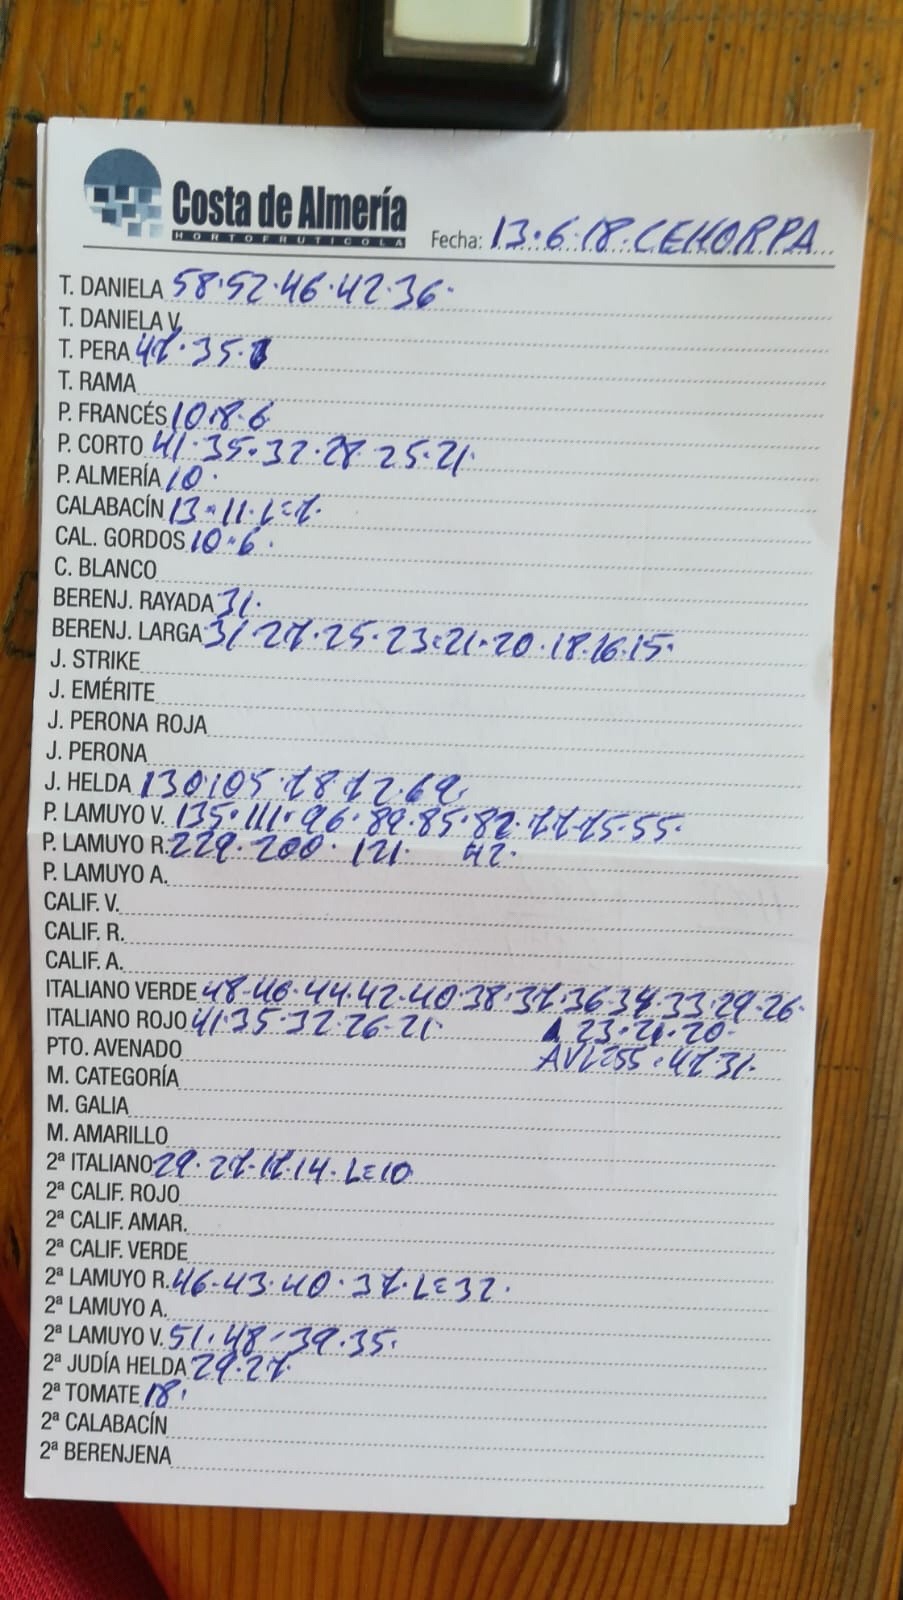 Costa de Almería
HORTOFRUTICOLA
Fecha: 13·6·18·CEHORPA
T. DANIELA 58·52·46·42·36·
T. DANIELA V.
T. PERA 47·35·
T. RAMA
P. FRANCÉS 10·8·6
P. CORTO 41·35·32·28·25·21·
P. ALMERÍA 10·
CALABACÍN 13·11·L=7·
CAL. GORDOS 10·6·
C. BLANCO
BERENJ. RAYADA 31·
BERENJ. LARGA 31·27·25·23·21·20·18·16·15·
J. STRIKE
J. EMÉRITE
J. PERONA ROJA
J. PERONA
J. HELDA 130·105·78·72·69·
P. LAMUYO V. 135·111·96·89·85·82·77·75·55·
P. LAMUYO R. 229·200·121· 42·
P. LAMUYO A.
CALIF. V.
CALIF. R.
CALIF. A.
ITALIANO VERDE 48·46·44·42·40·38·37·36·34·33·29·26·
ITALIANO ROJO 41·35·32·26·21· 23·21·20·
PTO. AVENADO AVL=55·47·31·
M. CATEGORÍA
M. GALIA
M. AMARILLO
2ª ITALIANO 29·27·17·14·L=10
2ª CALIF. ROJO
2ª CALIF. AMAR.
2ª CALIF. VERDE
2ª LAMUYO R. 46·43·40·37·L=32·
2ª LAMUYO A.
2ª LAMUYO V. 51·48·39·35·
2ª JUDÍA HELDA 29·27
2ª TOMATE 18·
2ª CALABACÍN
2ª BERENJENA